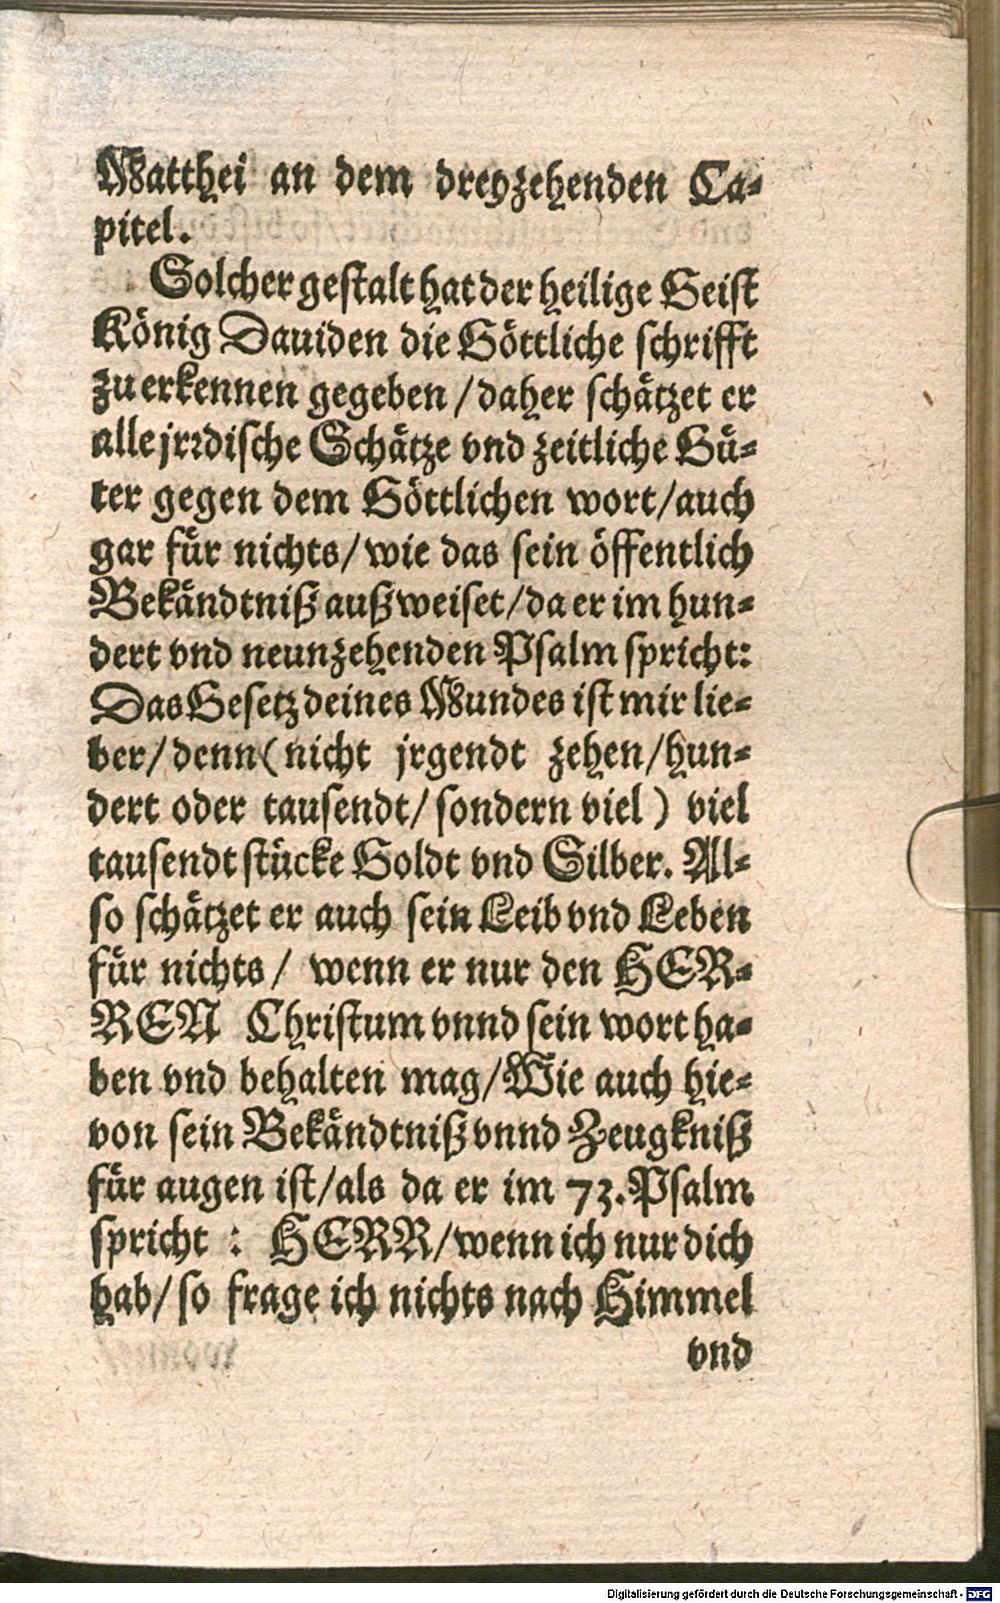 Matthei an dem dreyzehenden Ca-
pitel.
Solcher gestalt hat der heilige Geist
König Dauiden die Göttliche schrifft
zu erkennen gegeben / daher schätzet er
alle jrrdische Schätze vnd zeitliche Gü-
ter gegen dem Göttlichen wort / auch
gar für nichts / wie das sein öffentlich
Bekändtniß außweiset / da er im hun-
dert vnd neunzehenden Psalm spricht:
Das Gesetz deines Mundes ist mir lie-
ber / denn ( nicht jrgendt zehen / hun-
dert oder tausendt / sondern viel ) viel
tausendt stücke Goldt vnd Silber. Al-
so schätzet er auch sein Leib vnd Leben
für nichts / wenn er nur den HER-
REN Christum vnnd sein wort ha-
ben vnd behalten mag / Wie auch hie-
von sein Bekändtniß vnnd Zeugkniß
für augen ist / als da er im 73. Psalm
spricht : HERR / wenn ich nur dich
hab / so frage ich nichts nach Himmel
vnd
Digitalisierung gefördert durch die Deutsche Forschungsgemeinschaft - DFG